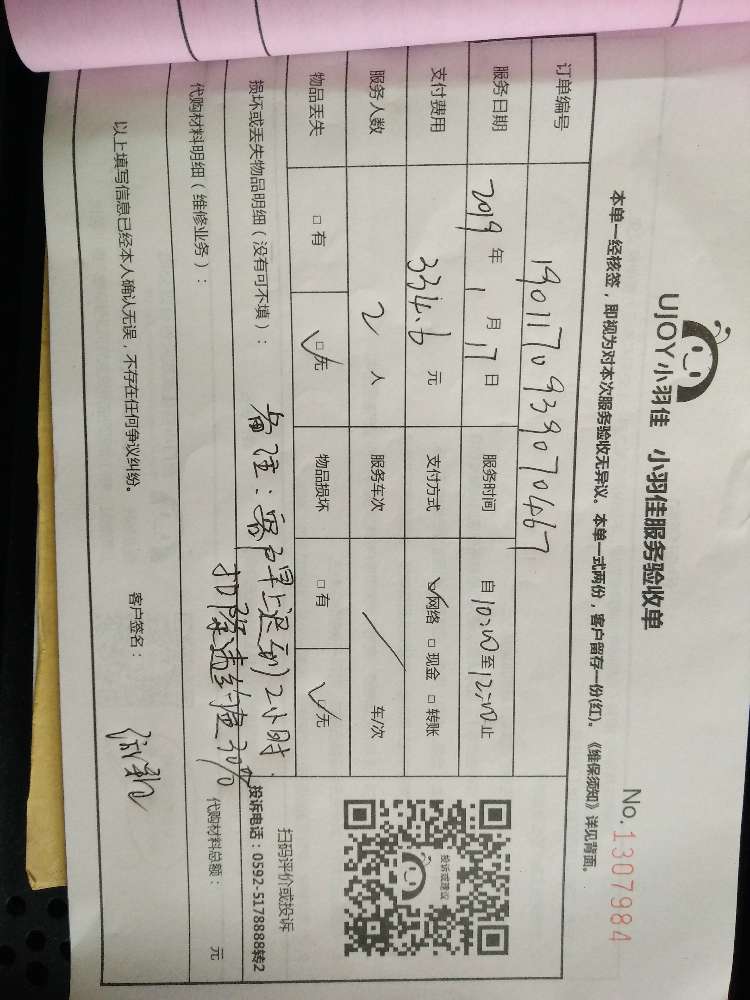 UJOY小羽佳 小羽佳服务验收单
No.1307984
本单一经核签，即视为对本次服务验收无异议。本单一式两份，客户留存一份(红)。《维保须知》详见背面。
订单编号 1901170939070467
服务日期 2019年1月17日 服务时间 自10:00至12:00止
支付费用 334.6元 支付方式 ☑网络 □现金 □转账
服务人数 2人 服务车次 / 车/次
物品丢失 □有 ☑无 物品损坏 □有 ☑无
投诉或建议
扫码评价或投诉
投诉电话：0592-5178888转2
损坏或丢失物品明细（没有可不填）：
备注：客户早上迟到2小时.
扣除违约金30%
代购材料明细（维修业务）： 代购材料总额： 元
以上填写信息已经本人确认无误，不存在任何争议纠纷。 客户签名：